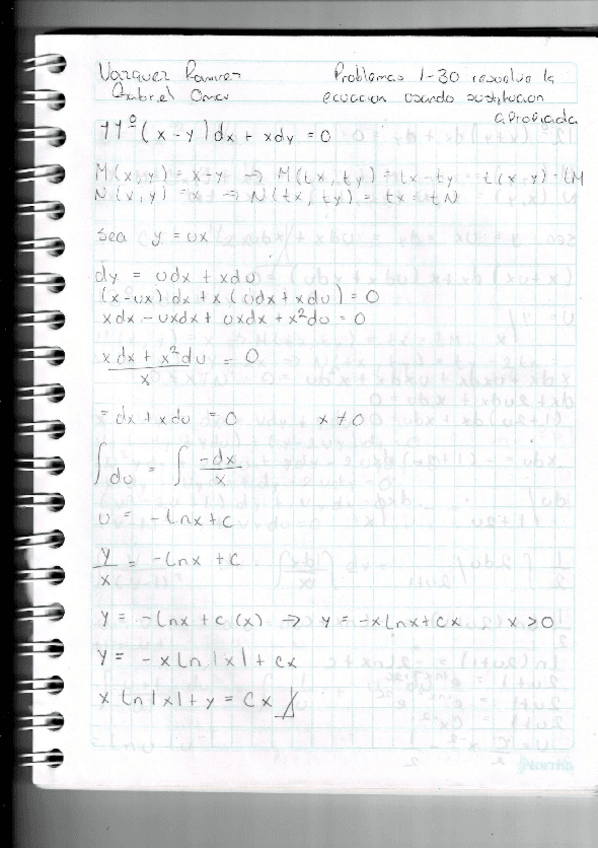 Vazquez Ramirez
Gabriel Omar
Problemas 1-30 resuelva la
ecuacion usando sustitucion
apropiada
11º (x-y)dx + xdy = 0
M(x,y) = x-y → M(tx,ty) = tx-ty = t(x,y) = tM
N(x,y) = x → N(tx,ty) = tx = tN
sea y = ux
dy = udx + xdu
(x-ux)dx + x(udx + xdu) = 0
xdx - uxdx + uxdx + x²du = 0
xdx + x²du = 0
x
= dx + xdu = 0 x ≠ 0
∫ du = ∫ -dx/x
u = -lnx + c
y/x = -lnx + c
y = -lnx + c(x) → y = -xlnx + cx x > 0
y = -xln|x| + cx
xln|x| + y = cx //